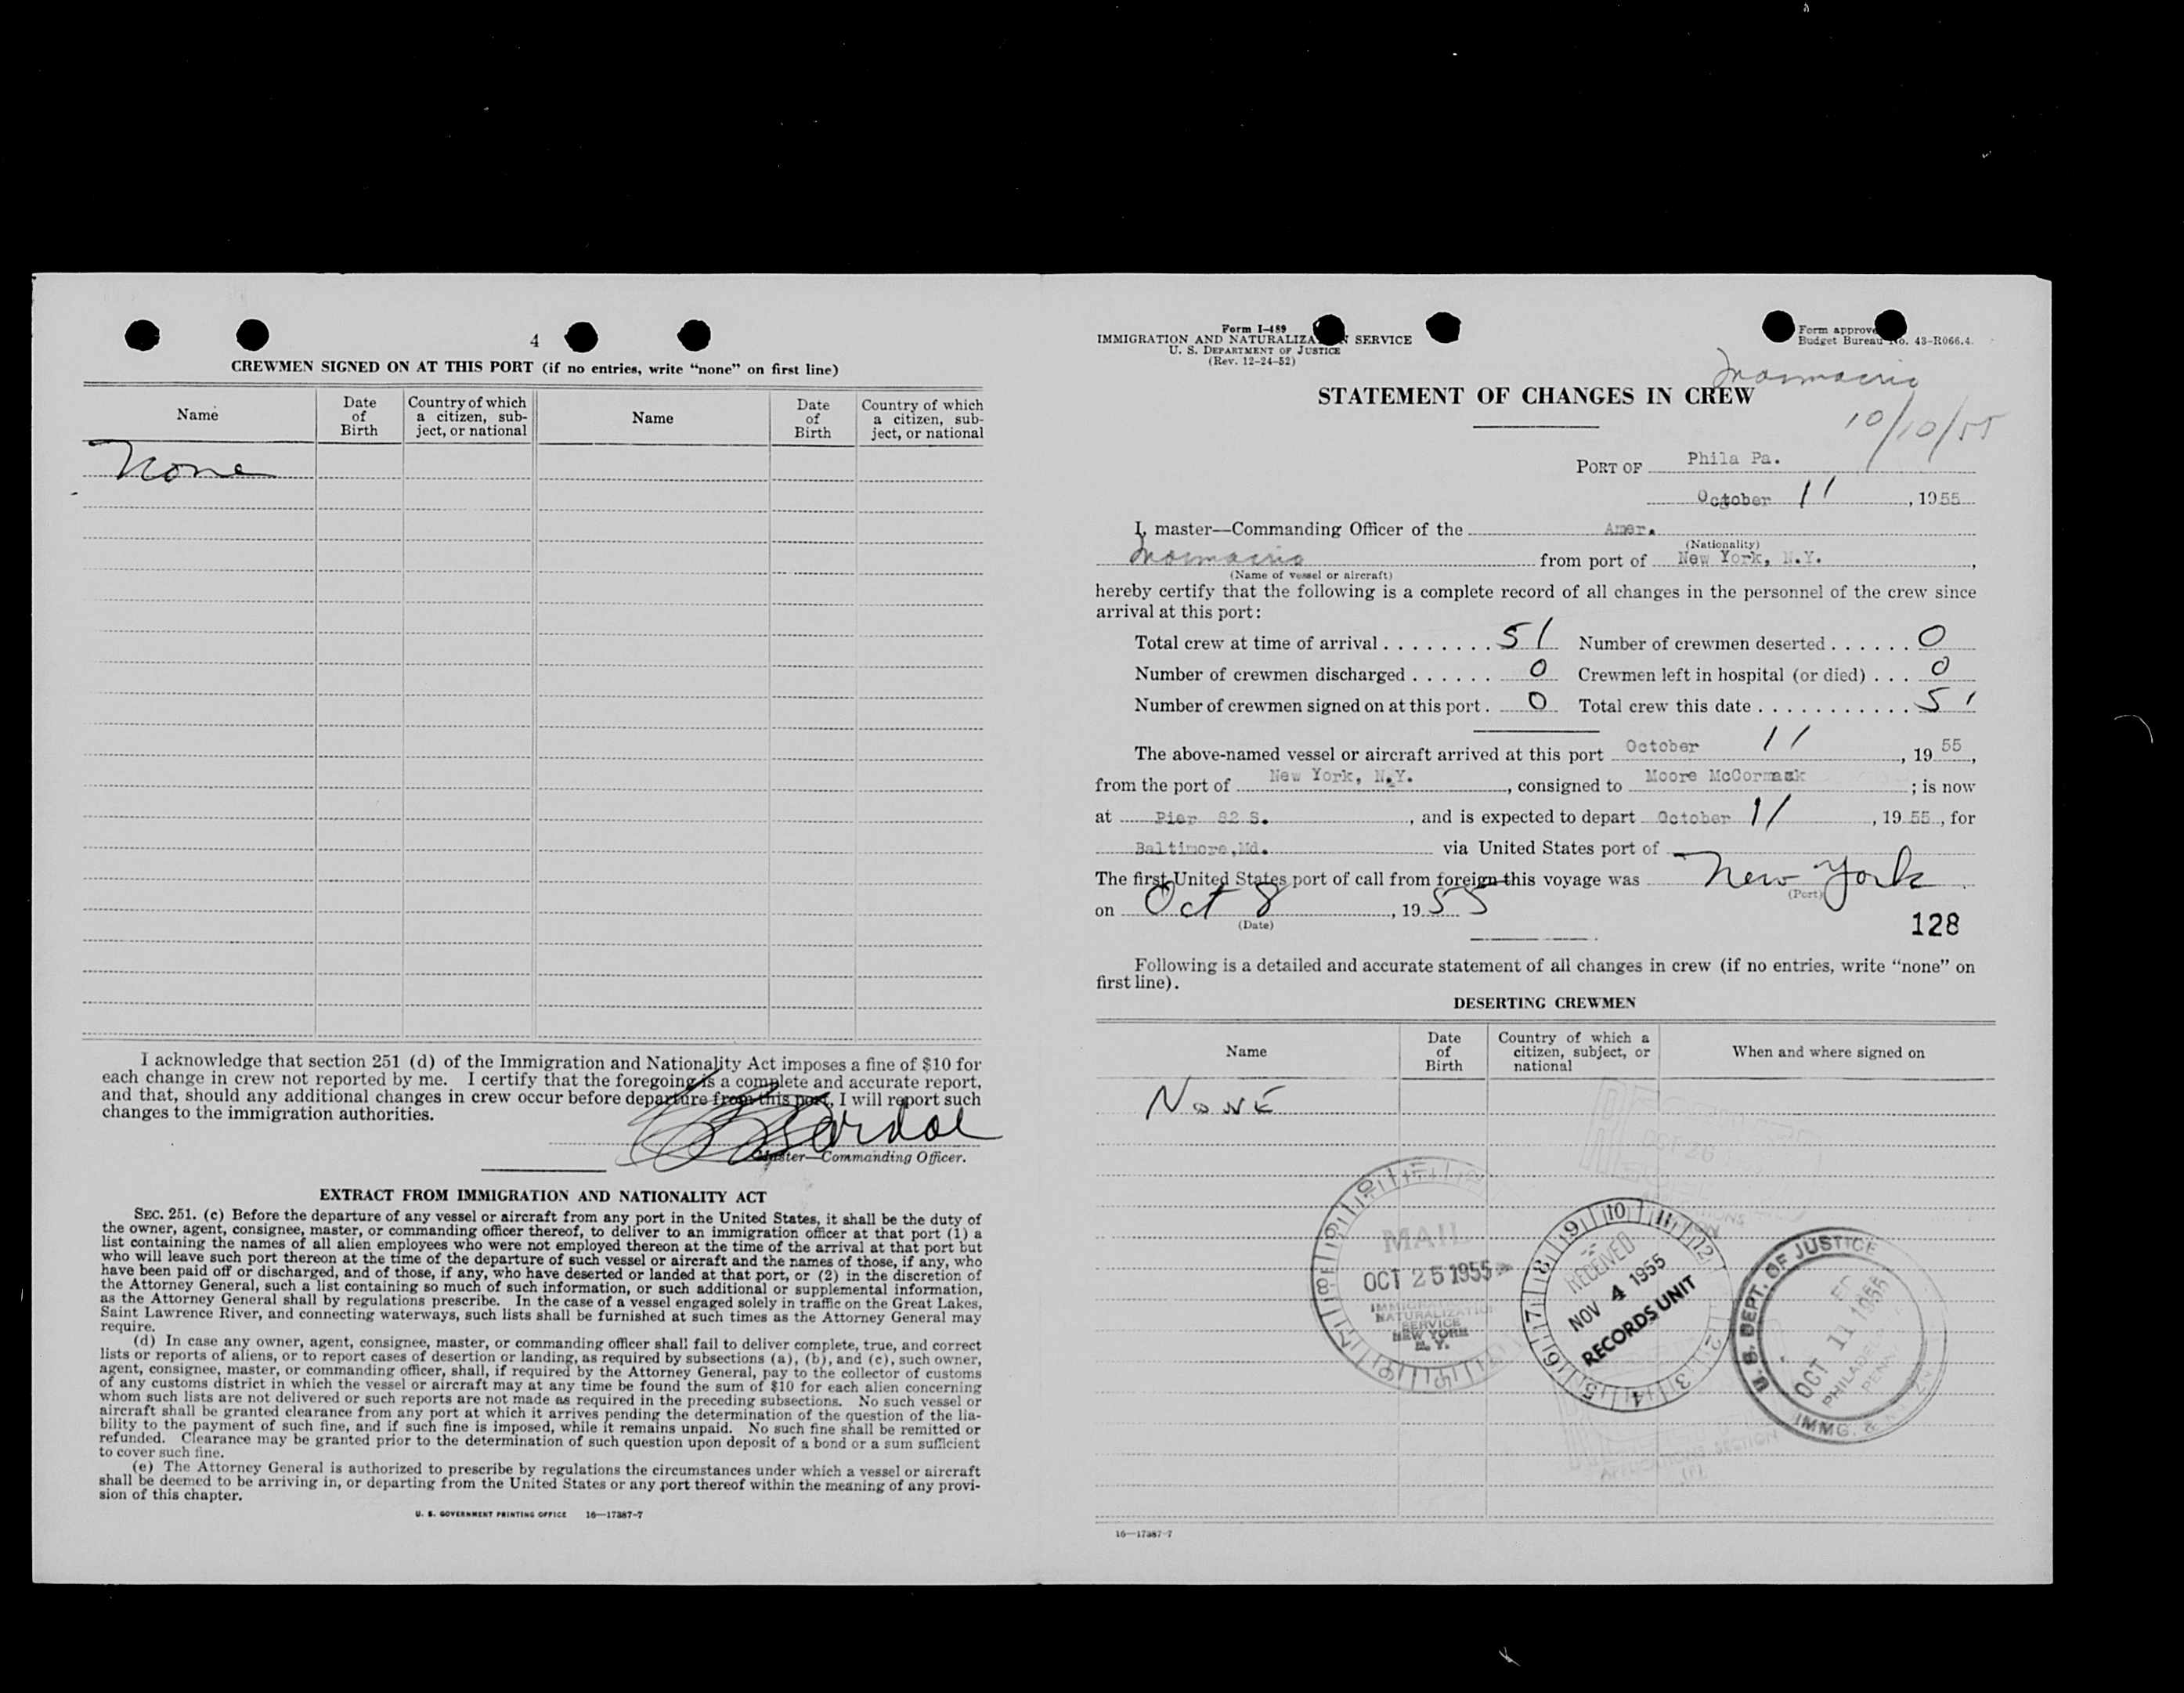 4
CREWMEN SIGNED ON AT THIS PORT (if no entries, write “none” on first line)
Name
Date of Birth
Country of which a citizen, subject, or national
Name
Date of Birth
Country of which a citizen, subject, or national
None
I acknowledge that section 251 (d) of the Immigration and Nationality Act imposes a fine of $10 for
each change in crew not reported by me. I certify that the foregoing is a complete and accurate report,
and that, should any additional changes in crew occur before departure from this port, I will report such
changes to the immigration authorities.
Master—Commanding Officer.
EXTRACT FROM IMMIGRATION AND NATIONALITY ACT
SEC. 251. (c) Before the departure of any vessel or aircraft from any port in the United States, it shall be the duty of
the owner, agent, consignee, master, or commanding officer thereof, to deliver to an immigration officer at that port (1) a
list containing the names of all alien employees who were not employed thereon at the time of the arrival at that port but
who will leave such port thereon at the time of the departure of such vessel or aircraft and the names of those, if any, who
have been paid off or discharged, and of those, if any, who have deserted or landed at that port, or (2) in the discretion of
the Attorney General, such a list containing so much of such information, or such additional or supplemental information,
as the Attorney General shall by regulations prescribe. In the case of a vessel engaged solely in traffic on the Great Lakes,
Saint Lawrence River, and connecting waterways, such lists shall be furnished at such times as the Attorney General may
require.
(d) In case any owner, agent, consignee, master, or commanding officer shall fail to deliver complete, true, and correct
lists or reports of aliens, or to report cases of desertion or landing, as required by subsections (a), (b), and (c), such owner,
agent, consignee, master, or commanding officer, shall, if required by the Attorney General, pay to the collector of customs
of any customs district in which the vessel or aircraft may at any time be found the sum of $10 for each alien concerning
whom such lists are not delivered or such reports are not made as required in the preceding subsections. No such vessel or
aircraft shall be granted clearance from any port at which it arrives pending the determination of the question of the lia-
bility to the payment of such fine, and if such fine is imposed, while it remains unpaid. No such fine shall be remitted or
refunded. Clearance may be granted prior to the determination of such question upon deposit of a bond or a sum sufficient
to cover such fine.
(e) The Attorney General is authorized to prescribe by regulations the circumstances under which a vessel or aircraft
shall be deemed to be arriving in, or departing from the United States or any port thereof within the meaning of any provi-
sion of this chapter.
U. S. GOVERNMENT PRINTING OFFICE 16—17387-7
Form I-489
IMMIGRATION AND NATURALIZATION SERVICE
U. S. DEPARTMENT OF JUSTICE
(Rev. 12-24-52)
Form approved
Budget Bureau No. 43-R066.4.
STATEMENT OF CHANGES IN CREW
10/10/55
PORT OF Phila Pa.
October 11, 1955
I, master—Commanding Officer of the Amer.
(Nationality)
from port of New York, N.Y.,
(Name of vessel or aircraft)
hereby certify that the following is a complete record of all changes in the personnel of the crew since
arrival at this port:
Total crew at time of arrival . . . . . . . . 51 Number of crewmen deserted . . . . . . 0
Number of crewmen discharged . . . . . . 0 Crewmen left in hospital (or died) . . . 0
Number of crewmen signed on at this port . 0 Total crew this date . . . . . . . . . . . 51
The above-named vessel or aircraft arrived at this port October 11, 1955,
from the port of New York, N.Y., consigned to Moore McCormack; is now
at Pier 82 S., and is expected to depart October 11, 1955, for
Baltimore, Md. via United States port of
The first United States port of call from foreign this voyage was New York
(Port)
on Oct 8, 1955
(Date)
128
Following is a detailed and accurate statement of all changes in crew (if no entries, write “none” on
first line).
DESERTING CREWMEN
Name
Date of Birth
Country of which a citizen, subject, or national
When and where signed on
NONE
MAIL
OCT 25 1955
IMMIGRATION
NATURALIZATION
SERVICE
NEW YORK
N. Y.
RECEIVED
NOV 4 1955
RECORDS UNIT
U. S. DEPT. OF JUSTICE
OCT 11 1955
IMMG. &
16—17387-7